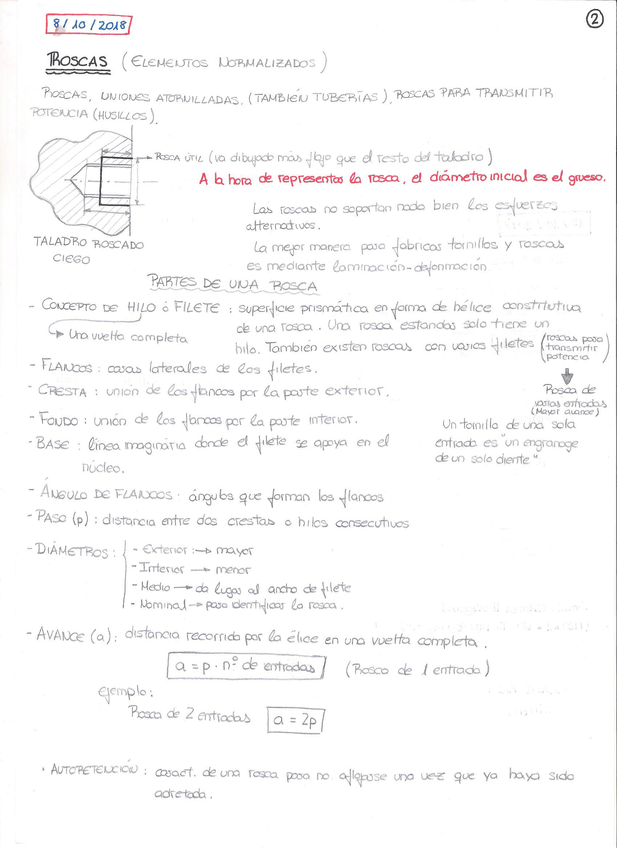 8/10/2018
2
ROSCAS (ELEMENTOS NORMALIZADOS)
ROSCAS, UNIONES ATORNILLADAS, (TAMBIÉN TUBERÍAS), ROSCAS PARA TRANSMITIR
POTENCIA (HUSILLOS).
ROSCA ÚTIL (va dibujado más flojo que el resto del taladro)
A la hora de representar la rosca, el diámetro inicial es el grueso.
TALADRO ROSCADO
CIEGO
Las roscas no soportan nada bien los esfuerzos
alternativos.
La mejor manera para fabricar tornillos y roscas
es mediante laminación-deformación
PARTES DE UNA ROSCA
- CONCEPTO DE HILO ó FILETE : superficie prismática en forma de hélice constitutiva
de una rosca. Una rosca estandar solo tiene un
Una vuelta completa
hilo. También existen roscas con varios filetes (roscas para
transmitir
potencia)
- FLANCOS : caras laterales de los filetes.
- CRESTA : unión de los flancos por la parte exterior.
Rosca de
varias entradas
(Mayor avance)
- FONDO : unión de los flancos por la parte interior.
Un tornillo de una sola
- BASE : línea imaginaria donde el filete se apoya en el
núcleo.
entrada es "un engranage
de un solo diente"
- ÁNGULO DE FLANCOS : ángulos que forman los flancos
- PASO (p) : distancia entre dos crestas o hilos consecutivos
- DIÁMETROS :
- Exterior : → mayor
- Interior → menor
- Medio → da lugar al ancho de filete
- Nominal → para identificar la rosca.
- AVANCE (a) : distancia recorrida por la élice en una vuelta completa.
a = p · nº de entradas (Rosca de 1 entrada)
ejemplo :
Rosca de 2 entradas a = 2p
· AUTORETENCIÓN : caract. de una rosca para no aflojarse una vez que ya haya sido
apretada.